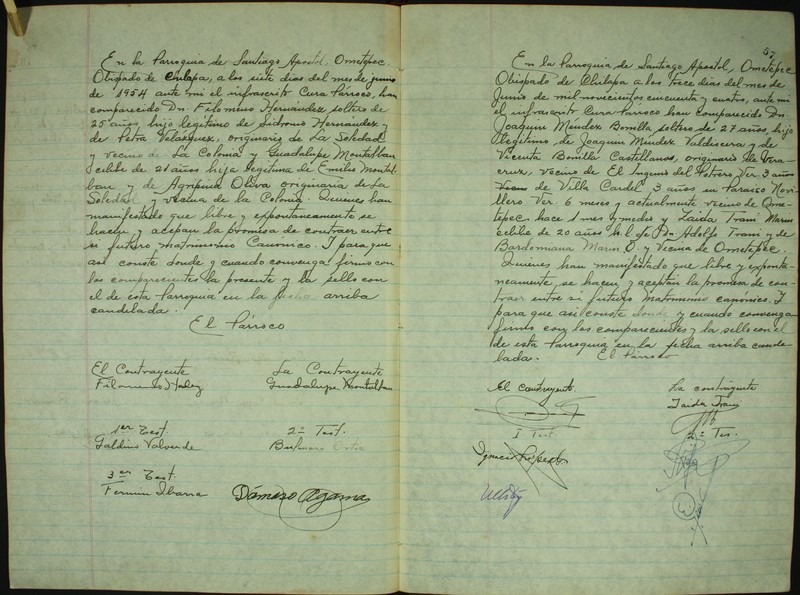 En la Parroquia de Santiago Apostol, Ometepec.
Obispado de Chilapa, a los siete dias del mes de junio
de 1954 ante mi el infrascrito Cura Párroco, han
comparecido Dn. Filomeno Hernández soltero de
25 años, hijo legítimo de Sidronio Hernandez y
de Petra Velázquez, originario de La Soledad
y vecino de La Colonia y Guadalupe Montalban
celibe de 21 años hija legitima de Emilio Montal-
ban y de Agripina Oliva originaria de La
Soledad y vecina de la Colonia. Quienes han
manifestado que libre y expontaneamente se
hacen y aceptan la promesa de contraer entre
si futuro matrimonio Canonico. I para que
asi conste donde y cuando convenga firmo con
los comparecientes la presente y la sello con
el de esta Parroquia en la fecha arriba
candelada.
El Párroco
El Contrayente
La Contrayente
Filomeno
Guadalupe Montalban
1er Test.
2o Test.
Galdino Valverde
3er Test.
Fermin Ibarra
Dámaso
57
En la Parroquia de Santiago Apostol, Ometepec
Obispado de Chilapa a los trece dias del mes de
Junio de mil novecientos cincuenta y cuatro, ante mi
el infrascrito Cura Parroco han comparecido Dn.
Joaquin Mendez Bonilla, soltero de 27 años, hijo
legitimo de Joaquin Mendez Valdiscera y de
Vicenta Bonilla Castellanos, originario de Vera-
cruz, vecino de El Ingenio del Potrero Ver. 3 años
de Villa Cardel 3 años en Paraiso Novi-
llero Ver. 6 meses y actualmente vecino de Ome-
tepec hace 1 mes y medio y Zaida Trani Marin
celibe de 20 años h. l. de Dn. Adolfo Trani y de
Marin O. y vecina de Ometepec.
Quienes han manifestado que libre y exponta-
neamente, se hacen y aceptan la promesa de con-
traer entre si futuro matrimonio canónico. I
para que asi conste donde y cuando convenga
firmo con los comparecientes y la sello con el
de esta Parroquia en la fecha arriba cande-
lada. El Párroco
El contrayente.
La contrayente
Zaida Trani
I Test.
2o Tes.
Ignacio